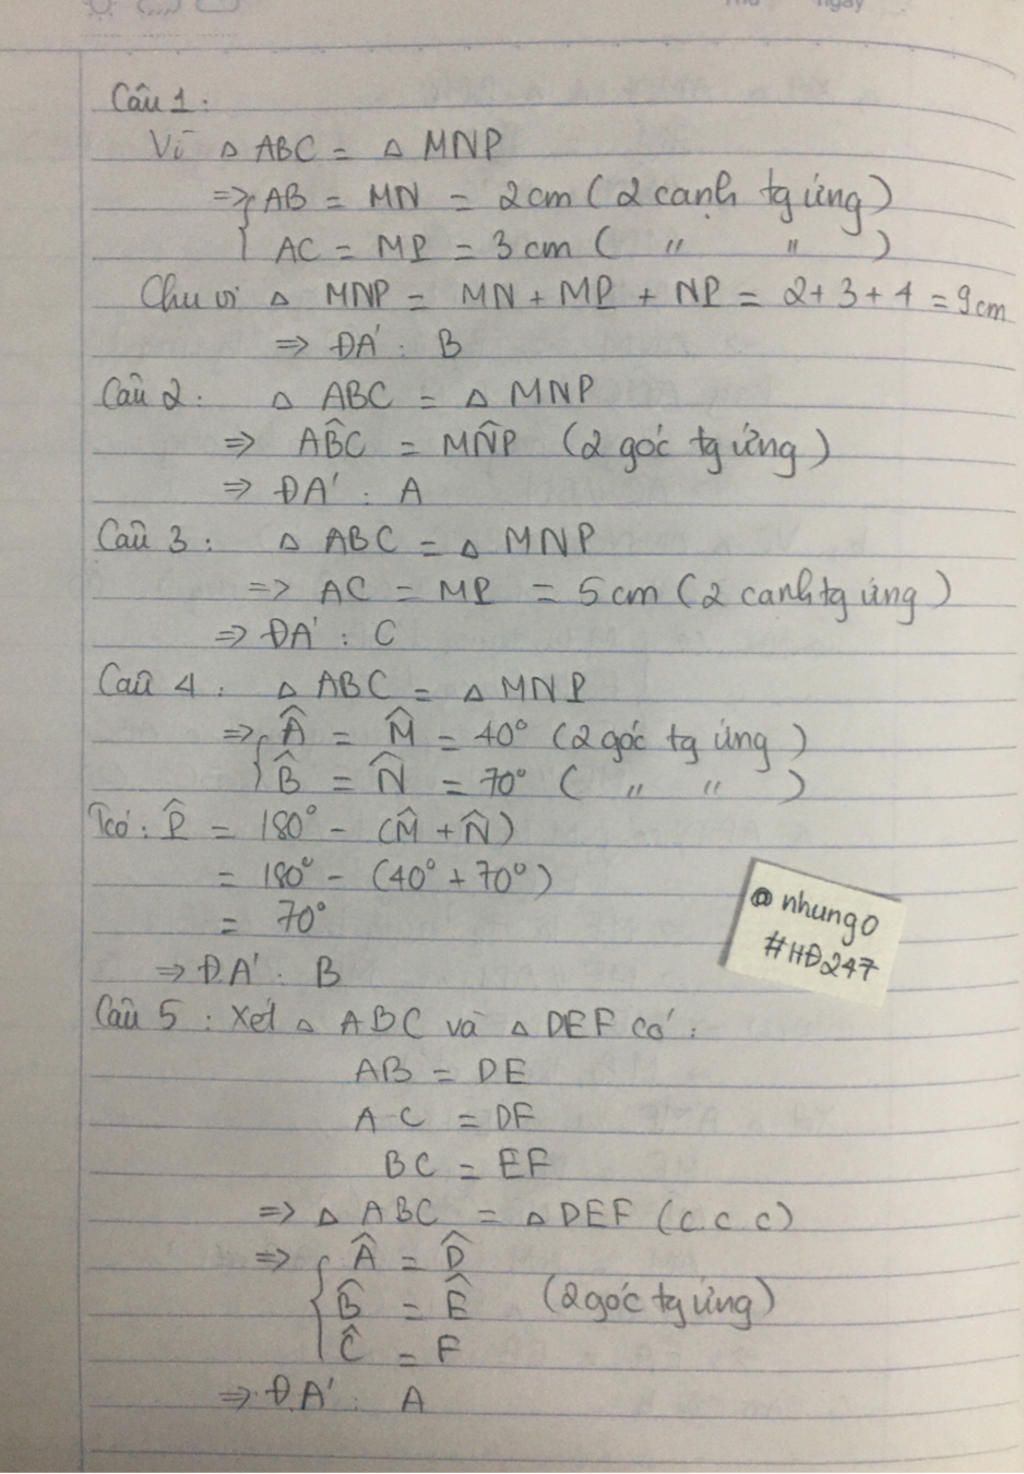 Thứ ngày
Câu 1 :
Vì △ ABC = △ MNP
=> { AB = MN = 2cm ( 2 cạnh tg ứng )
{ AC = MP = 3 cm ( " " )
Chu vi △ MNP = MN + MP + NP = 2 + 3 + 4 = 9cm
=> ĐA' : B
Câu 2 : △ ABC = △ MNP
=> AB̂C = MN̂P (2 góc tg ứng )
=> ĐA' : A
Câu 3 : △ ABC = △ MNP
=> AC = MP = 5 cm (2 cạnh tg ứng )
=> ĐA' : C
Câu 4 : △ ABC = △ MNP
=> { Â = M̂ = 40° (2 góc tg ứng )
{ B̂ = N̂ = 70° ( " " )
Tcó : P̂ = 180° - (M̂ + N̂)
= 180° - (40° + 70°)
= 70°
=> ĐA' : B
@ nhungo
#HĐ247
Câu 5 : Xét △ ABC và △ DEF có :
AB = DE
AC = DF
BC = EF
=> △ ABC = △ DEF (c.c.c)
=> { Â = D̂
{ B̂ = Ê (2góc tg ứng)
{ Ĉ = F
=> ĐA' : A